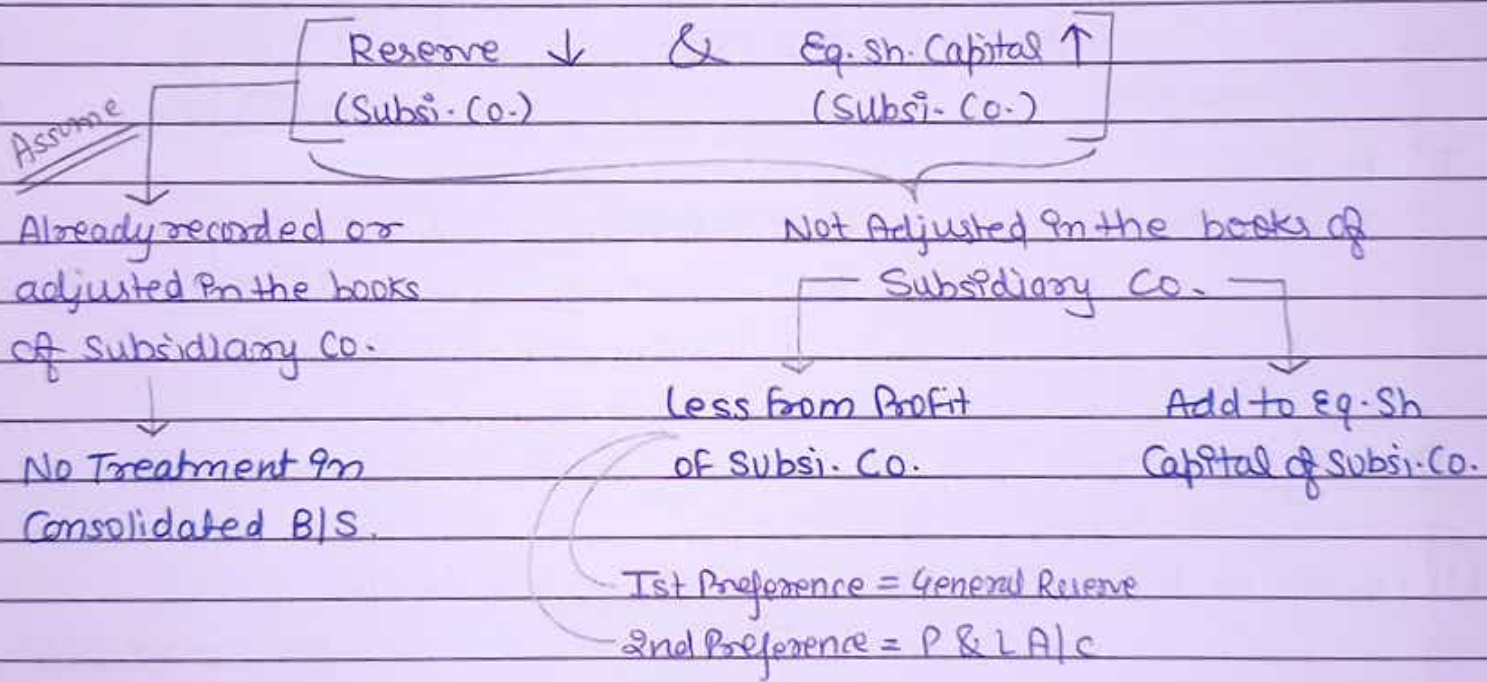 Reserve ↓ & Eq. Sh. Capital ↑
(Subsi. Co.) (Subsi. Co.)
Assume
Already recorded or
adjusted in the books
of Subsidiary Co.
No Treatment in
Consolidated B/S.
Not Adjusted in the books of
Subsidiary Co.
Less from Profit
of Subsi. Co.
Add to Eq. Sh
Capital of Subsi. Co.
Ist Preference = General Reserve
2nd Preference = P & L A/c